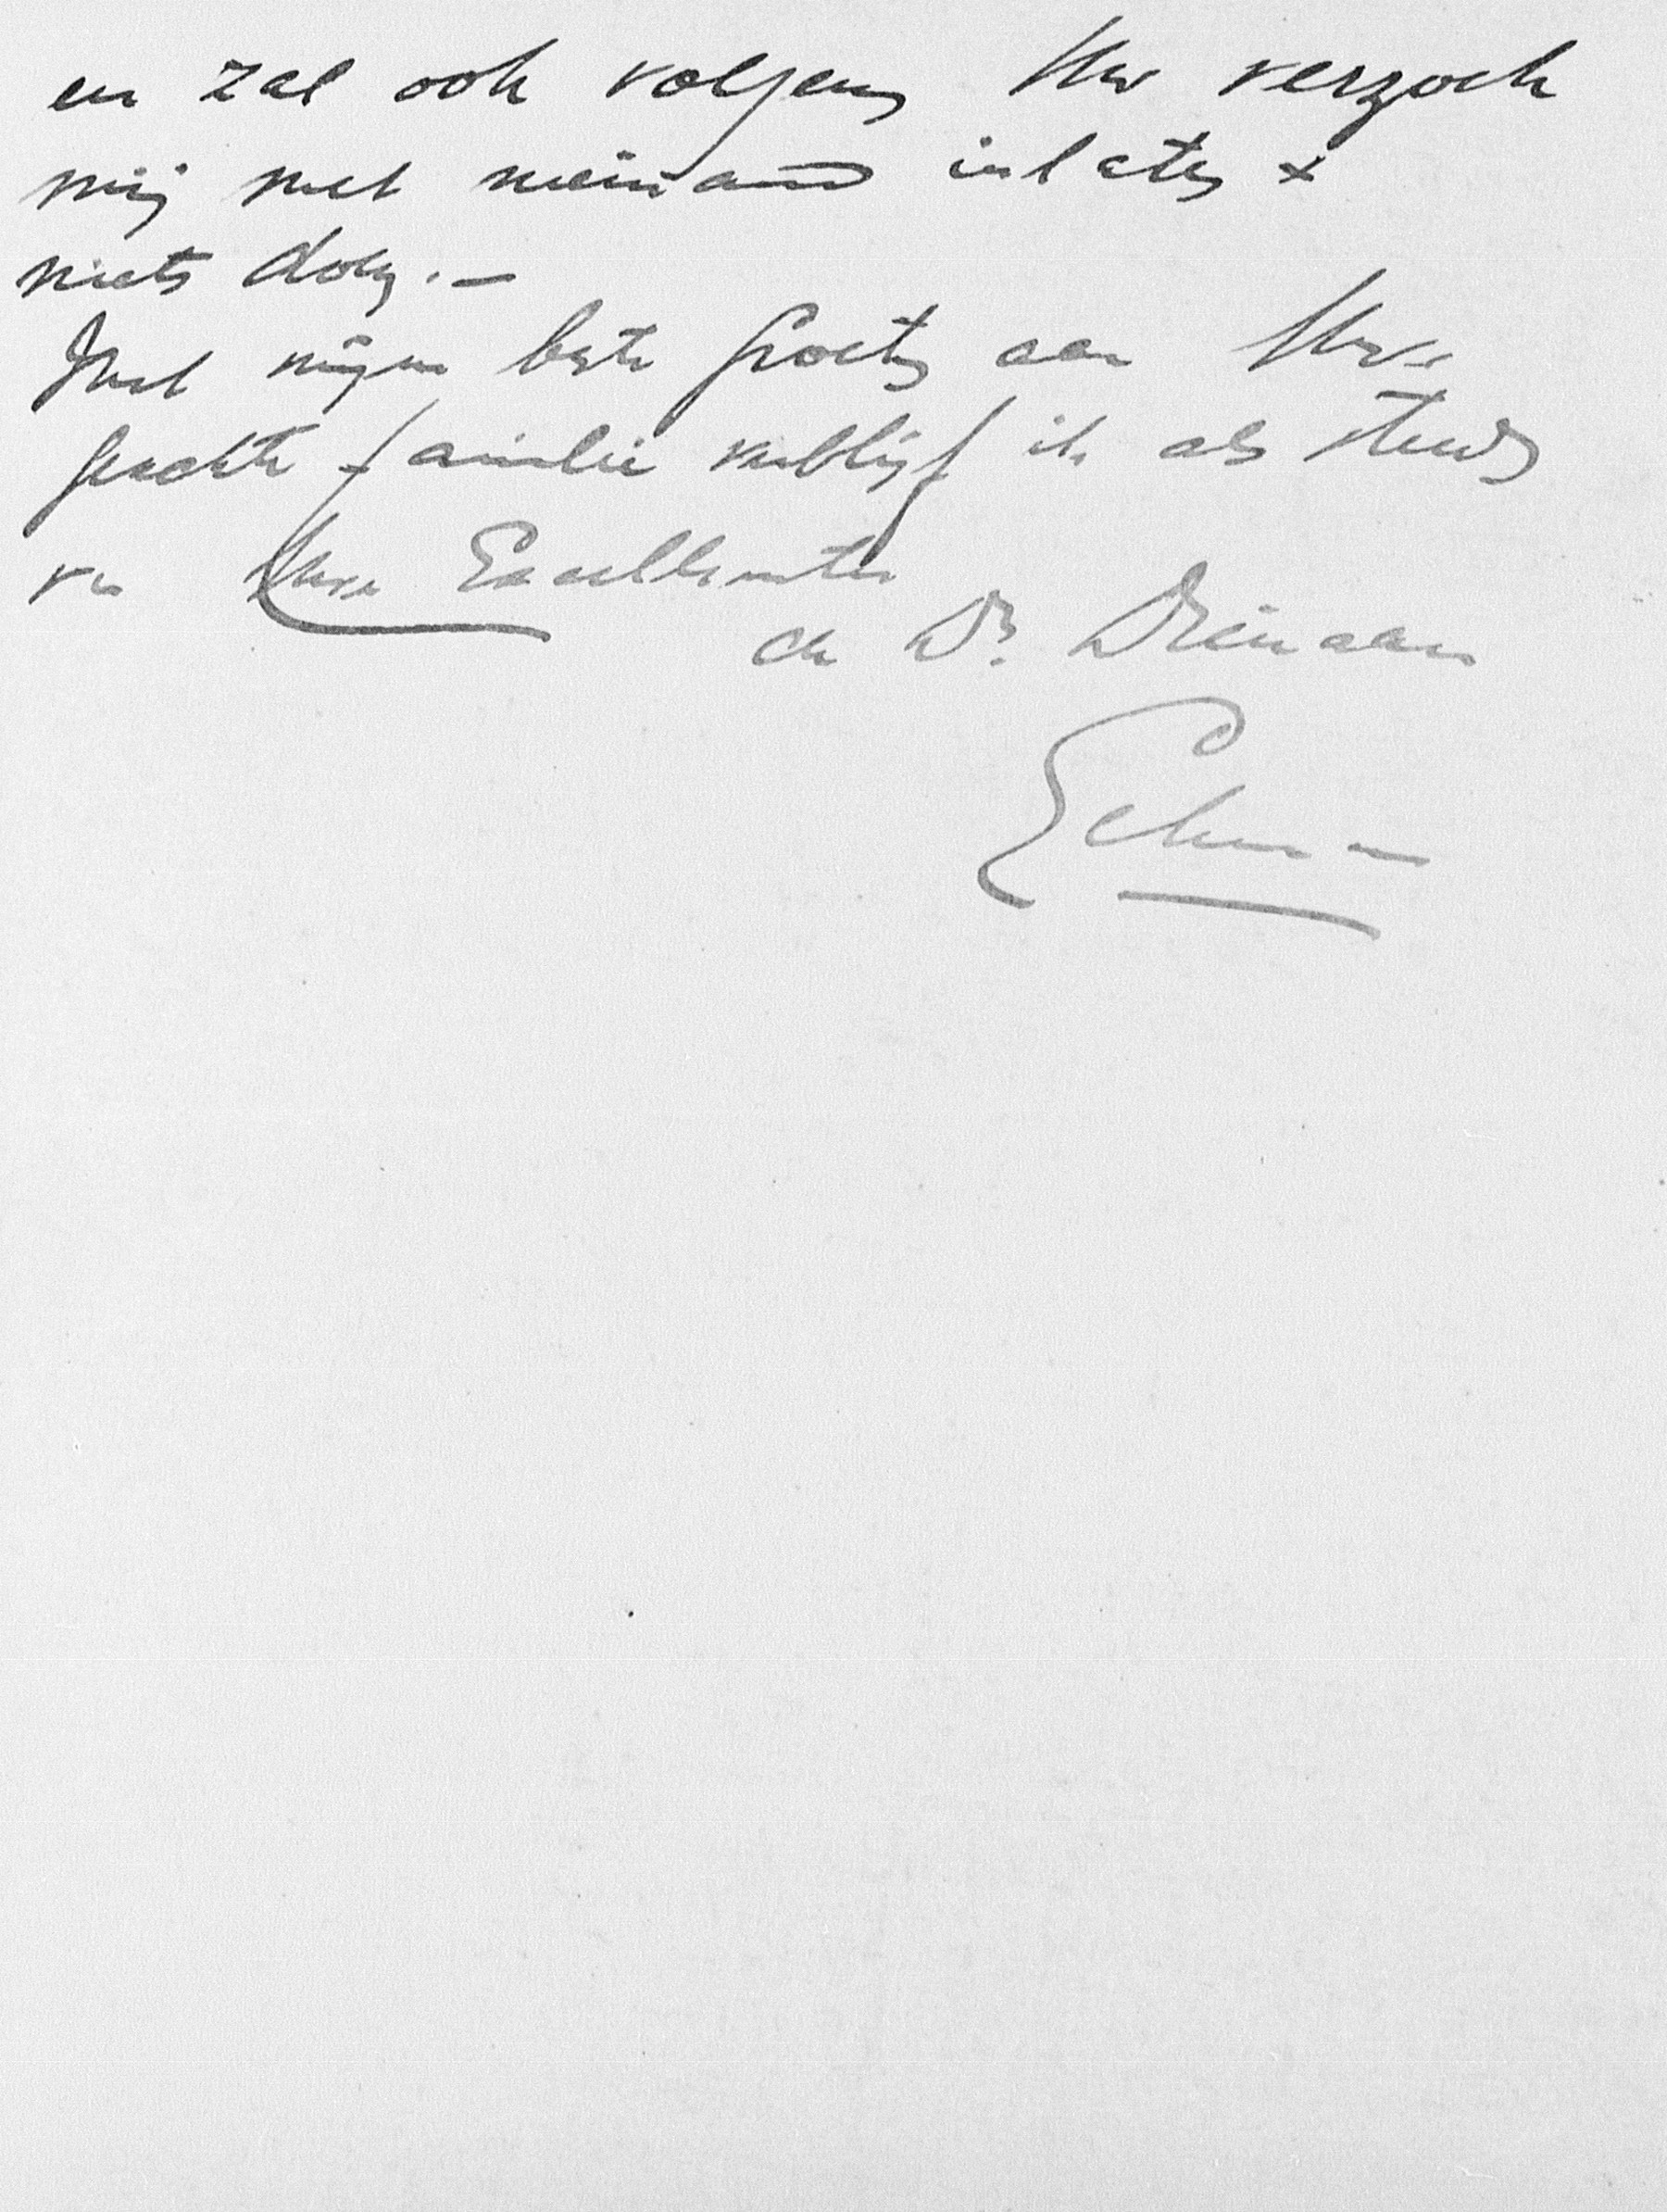 en zal ook volgens Uw verzoek
mij met niemand inlaten +
niets doen. —
Met mijne beste groeten aan Uwe
geachte familie verblijf ik als steeds
van Uwe Excellentie
de Dr. Dienaar